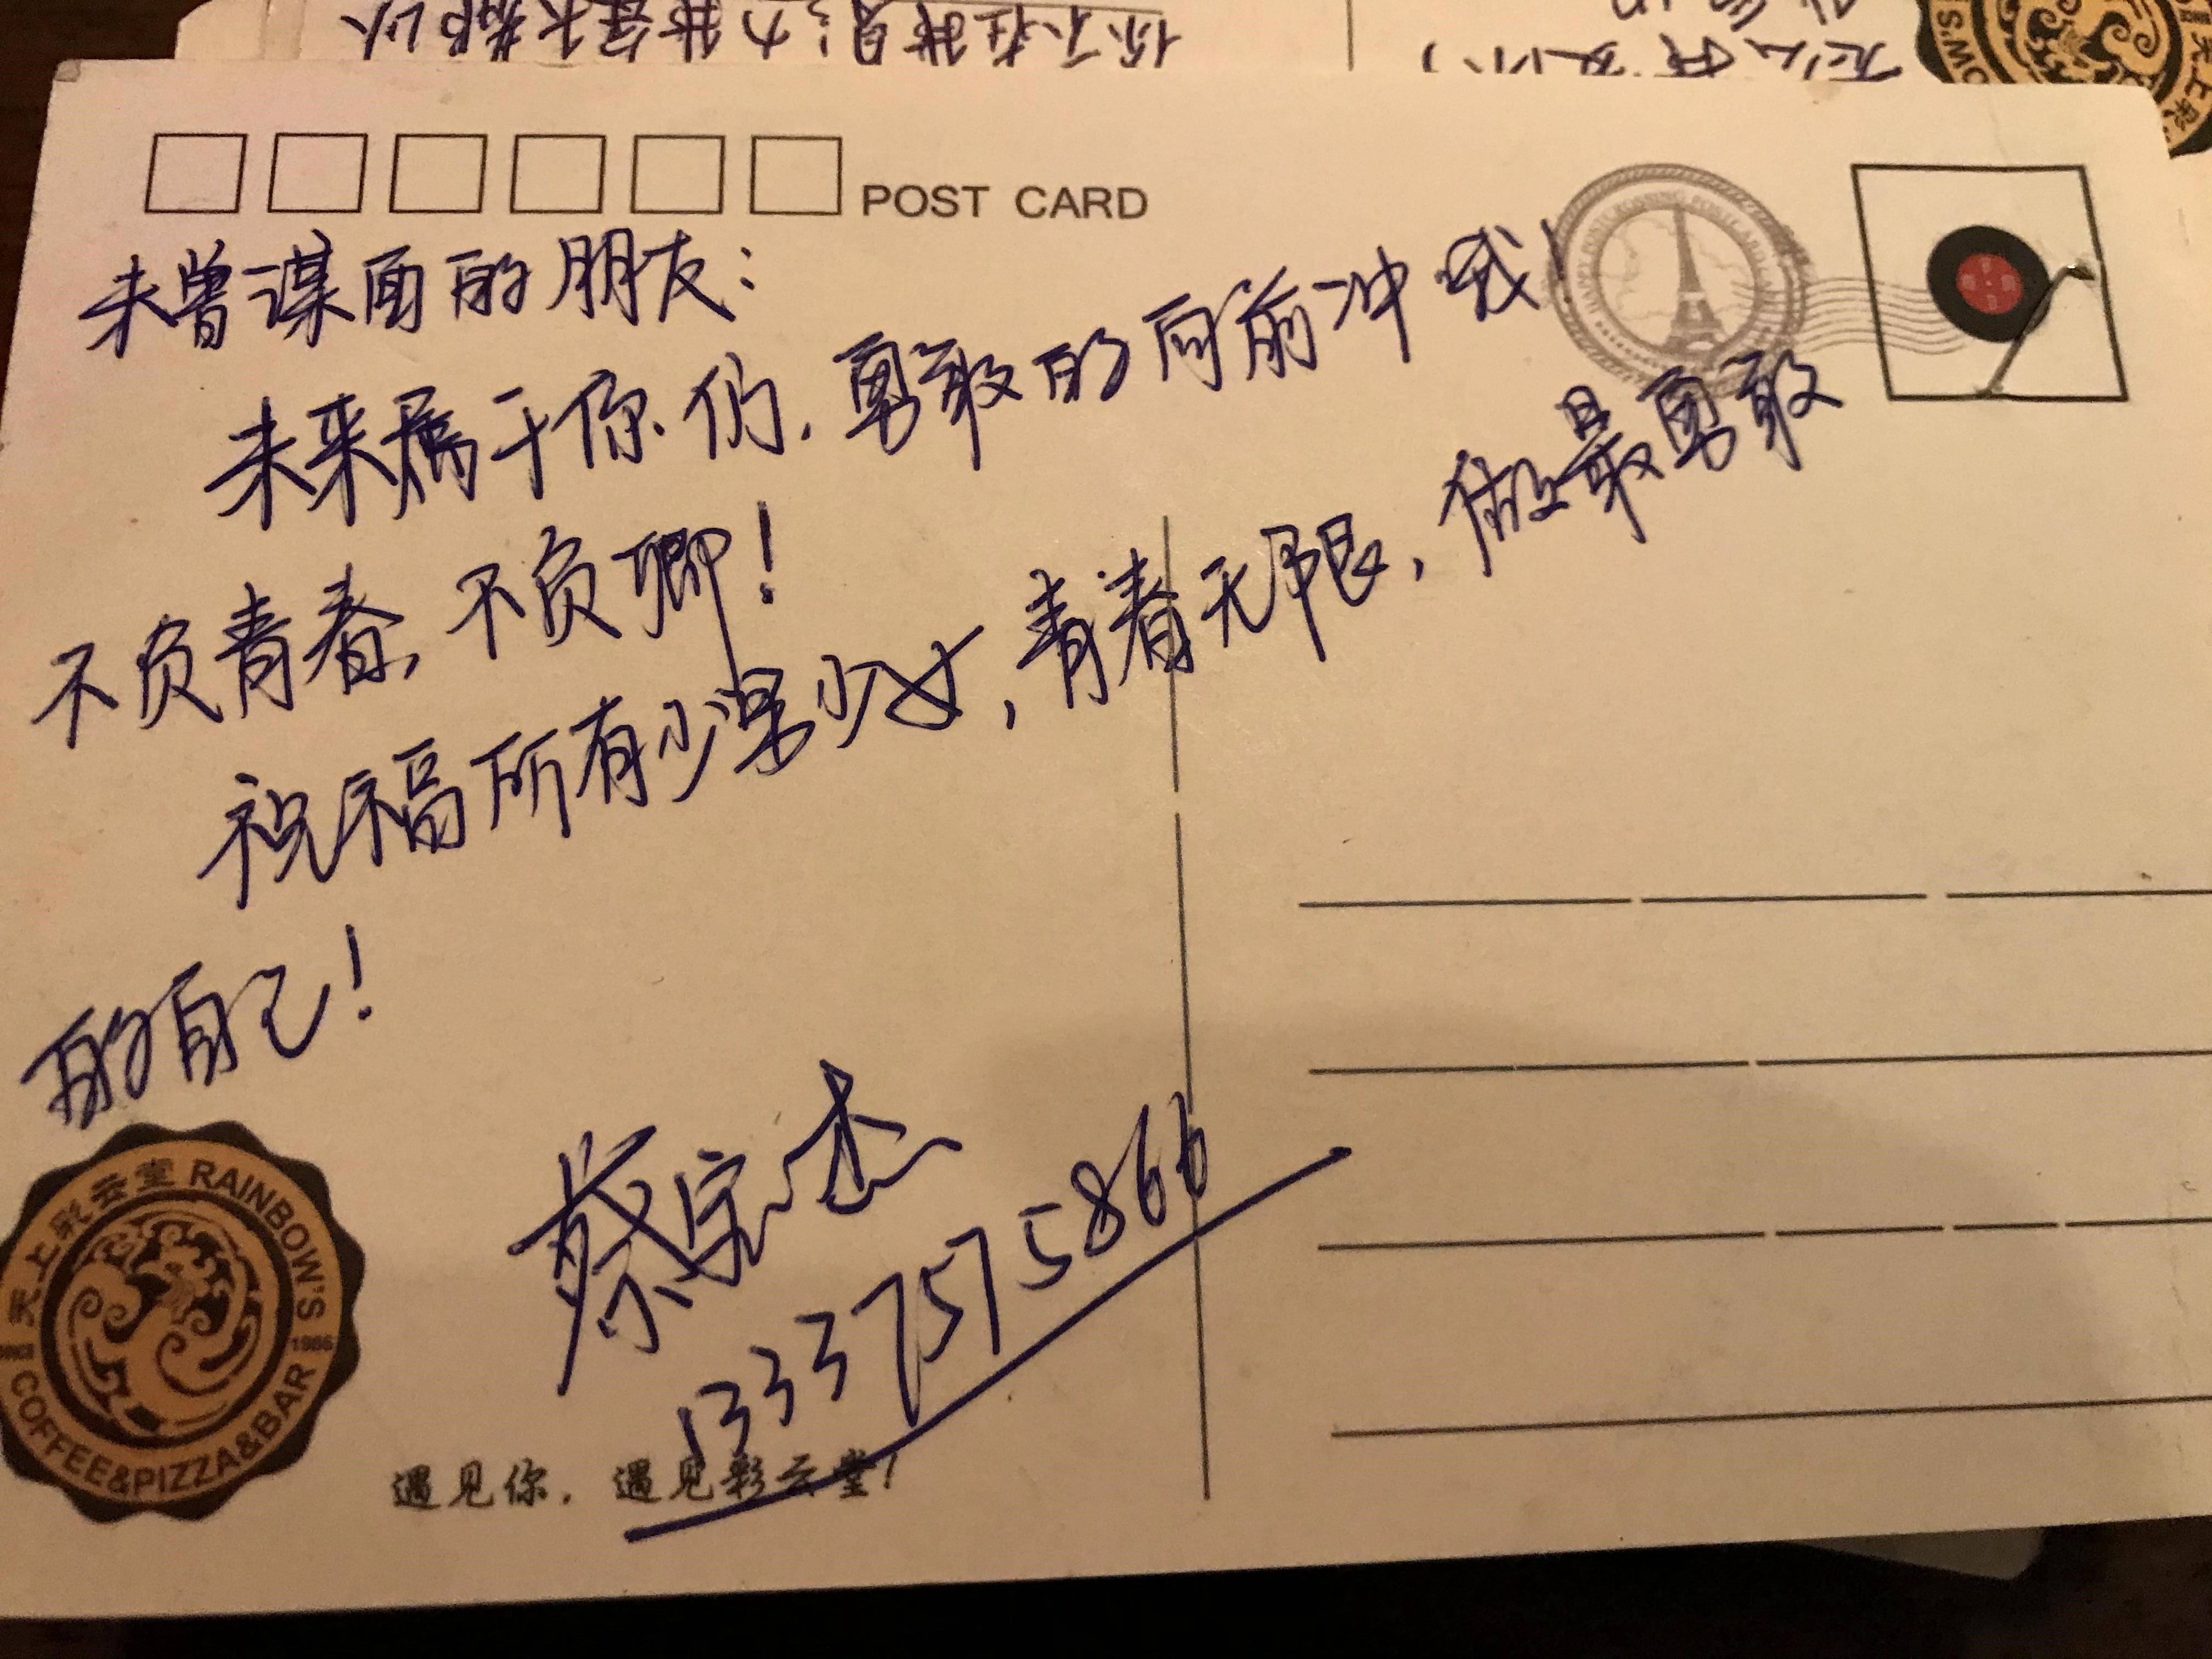 POST CARD
未曾谋面的朋友：
未来属于你们，勇敢的向前冲哦！
不负青春，不负卿！
祝福所有少男少女，青春无限，做最勇敢
的自己！
蔡宗杰
13337575866
天上彩云堂 RAINBOW'S
1986
COFFEE&PIZZA&BAR
遇见你，遇见彩云堂！